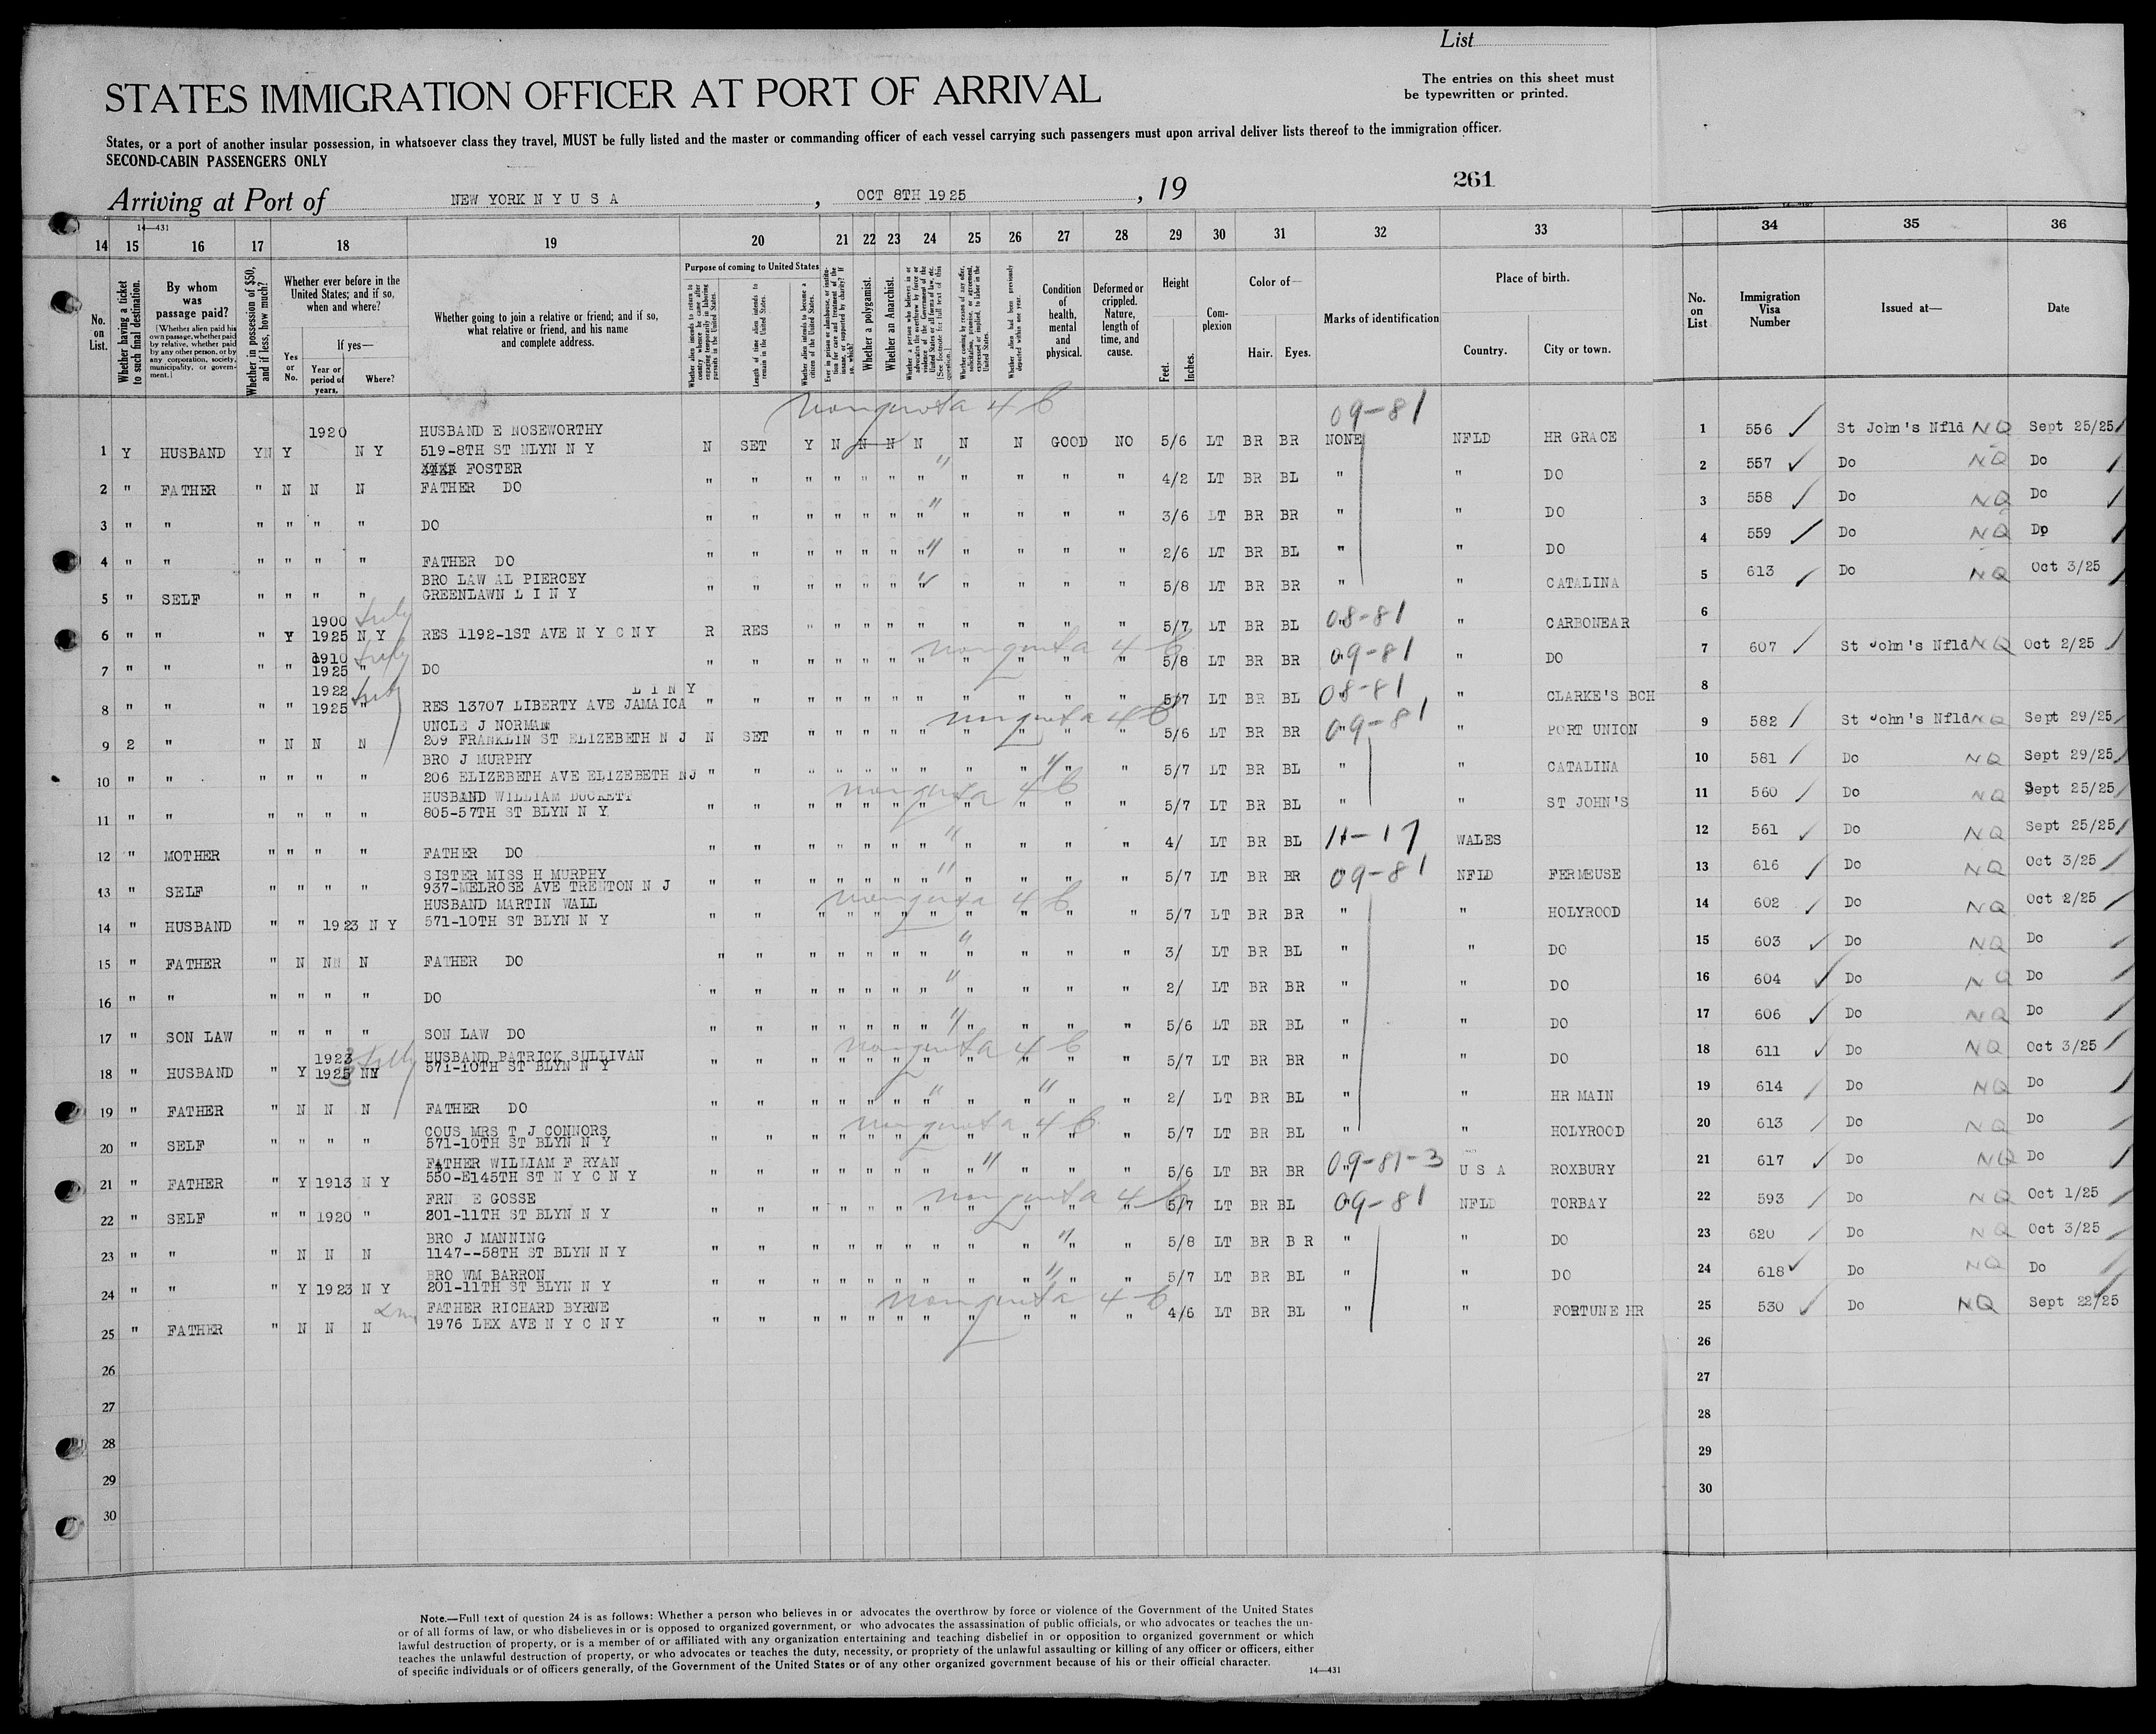 List
STATES IMMIGRATION OFFICER AT PORT OF ARRIVAL
The entries on this sheet must
be typewritten or printed.
States, or a port of another insular possession, in whatsoever class they travel, MUST be fully listed and the master or commanding officer of each vessel carrying such passengers must upon arrival deliver lists thereof to the immigration officer.
SECOND-CABIN PASSENGERS ONLY
261
Arriving at Port of NEW YORK N Y U S A , OCT 8TH 1925 , 19
14—431
14 15 16 17 18 19 20 21 22 23 24 25 26 27 28 29 30 31 32 33 34 35 36
No. on List.
Whether having a ticket to such final destination.
By whom was passage paid?
(Whether alien paid his own passage, whether paid by relative, whether paid by any other person, or by any corporation, society, municipality, or government.)
Whether in possession of $50, and if less, how much?
Whether ever before in the United States; and if so, when and where?
Yes or No.
If yes—
Year or period of years.
Where?
Whether going to join a relative or friend; and if so, what relative or friend, and his name and complete address.
Purpose of coming to United States
Whether alien intends to return to country whence he came after engaging temporarily in laboring pursuits in the United States.
Length of time alien intends to remain in the United States.
Whether alien intends to become a citizen of the United States.
Ever in prison or almshouse, or institution for care and treatment of the insane, or supported by charity? If so, which?
Whether a polygamist.
Whether an Anarchist.
Whether a person who believes in or advocates the overthrow by force or violence of the Government of the United States or all forms of law, etc. (See footnote for full text of this question.)
Whether coming by reason of any offer, solicitation, promise, or agreement, expressed or implied, to labor in the United States.
Whether alien had been previously deported within one year.
Condition of health, mental and physical.
Deformed or crippled. Nature, length of time, and cause.
Height
Feet. Inches.
Complexion
Color of—
Hair. Eyes.
Marks of identification
Place of birth.
Country. City or town.
No. on List
Immigration Visa Number
Issued at—
Date
nonquota 4 b 09-81
1920 HUSBAND E NOSEWORTHY
1 Y HUSBAND YN Y N Y 519-8TH ST NLYN N Y N SET Y N N N N N N GOOD NO 5/6 LT BR BR NONE NFLD HR GRACE 1 556 St John's Nfld NQ Sept 25/25
FOSTER
2 " FATHER " N N N FATHER DO " " " " " " " " " " " 4/2 LT BR BL " " DO 2 557 Do NQ Do
3 " " " " " " DO " " " " " " " " " " " 3/6 LT BR BR " " DO 3 558 Do NQ Do
4 " " " " " " FATHER DO " " " " " " " " " " " 2/6 LT BR BL " " DO 4 559 Do NQ Do
BRO LAW AL PIERCEY
5 " SELF " " " " GREENLAWN L I N Y " " " " " " " " " " " 5/8 LT BR BR " " CATALINA 5 613 Do NQ Oct 3/25
1900
6 " " " Y 1925 N Y RES 1192-1ST AVE N Y C N Y R RES " " " " " " " " " 5/7 LT BR BL 08-81 " CARBONEAR 6
1910
7 " " " " 1925 " DO " " " " " " " " " " " 5/8 LT BR BR 09-81 " DO 7 607 St John's Nfld NQ Oct 2/25
1922 L I N Y
8 " " " " 1925 " RES 13707 LIBERTY AVE JAMAICA " " " " " " " " " " " 5/7 LT BR BL 08-81 " CLARKE'S BCH 8
UNCLE J NORMAN
9 2 " " N N N 209 FRANKLIN ST ELIZEBETH N J N SET " " " " " " " " " 5/6 LT BR BR 09-81 " PORT UNION 9 582 St John's Nfld NQ Sept 29/25
BRO J MURPHY
10 " " " " " " 206 ELIZEBETH AVE ELIZEBETH NJ " " " " " " " " " " " 5/7 LT BR BL " " CATALINA 10 581 Do NQ Sept 29/25
HUSBAND WILLIAM DUCKETT
11 " " " " " " 805-57TH ST BLYN N Y " " " " " " " " " " " 5/7 LT BR BL " " ST JOHN'S 11 560 Do NQ Sept 25/25
12 " MOTHER " " " " FATHER DO " " " " " " " " " " " 4/ LT BR BL 11-17 WALES 12 561 Do NQ Sept 25/25
SISTER MISS H MURPHY
13 " SELF " " " " 937-MELROSE AVE TRENTON N J " " " " " " " " " " " 5/7 LT BR BR 09-81 NFLD FERMEUSE 13 616 Do NQ Oct 3/25
HUSBAND MARTIN WALL
14 " HUSBAND " " 1923 N Y 571-10TH ST BLYN N Y " " " " " " " " " " " 5/7 LT BR BR " " HOLYROOD 14 602 Do NQ Oct 2/25
15 " FATHER " N N N FATHER DO " " " " " " " " " " " 3/ LT BR BL " " DO 15 603 Do NQ Do
16 " " " " " " DO " " " " " " " " " " " 2/ LT BR BR " " DO 16 604 Do NQ Do
17 " SON LAW " " " " SON LAW DO " " " " " " " " " " " 5/6 LT BR BL " " DO 17 606 Do NQ Do
1923 HUSBAND PATRICK SULLIVAN
18 " HUSBAND " Y 1925 NY 571-10TH ST BLYN N Y " " " " " " " " " " " 5/7 LT BR BR " " DO 18 611 Do NQ Oct 3/25
19 " FATHER " N N N FATHER DO " " " " " " " " " " " 2/ LT BR BL " " HR MAIN 19 614 Do NQ Do
COUS MRS T J CONNORS
20 " SELF " " " " 571-10TH ST BLYN N Y " " " " " " " " " " " 5/7 LT BR BL " " HOLYROOD 20 613 Do NQ Do
FATHER WILLIAM F RYAN
21 " FATHER " Y 1913 N Y 550-E145TH ST N Y C N Y " " " " " " " " " " " 5/6 LT BR BR 09-81-3 U S A ROXBURY 21 617 Do NQ Do
FRN E GOSSE
22 " SELF " " 1920 " 201-11TH ST BLYN N Y " " " " " " " " " " " 5/7 LT BR BL 09-81 NFLD TORBAY 22 593 Do NQ Oct 1/25
BRO J MANNING
23 " " " N N N 1147--58TH ST BLYN N Y " " " " " " " " " " " 5/8 LT BR B R " " DO 23 620 Do NQ Oct 3/25
BRO WM BARRON
24 " " " Y 1923 N Y 201-11TH ST BLYN N Y " " " " " " " " " " " 5/7 LT BR BL " " DO 24 618 Do NQ Do
FATHER RICHARD BYRNE
25 " FATHER " N N N 1976 LEX AVE N Y C N Y " " " " " " " " " " " 4/6 LT BR BL " " FORTUNE HR 25 530 Do NQ Sept 22/25
26 26
27 27
28 28
29 29
30 30
Note.—Full text of question 24 is as follows: Whether a person who believes in or advocates the overthrow by force or violence of the Government of the United States
or of all forms of law, or who disbelieves in or is opposed to organized government, or who advocates the assassination of public officials, or who advocates or teaches the un-
lawful destruction of property, or is a member of or affiliated with any organization entertaining and teaching disbelief in or opposition to organized government or which
teaches the unlawful destruction of property, or who advocates or teaches the duty, necessity, or propriety of the unlawful assaulting or killing of any officer or officers, either
of specific individuals or of officers generally, of the Government of the United States or of any other organized government because of his or their official character.
14—431